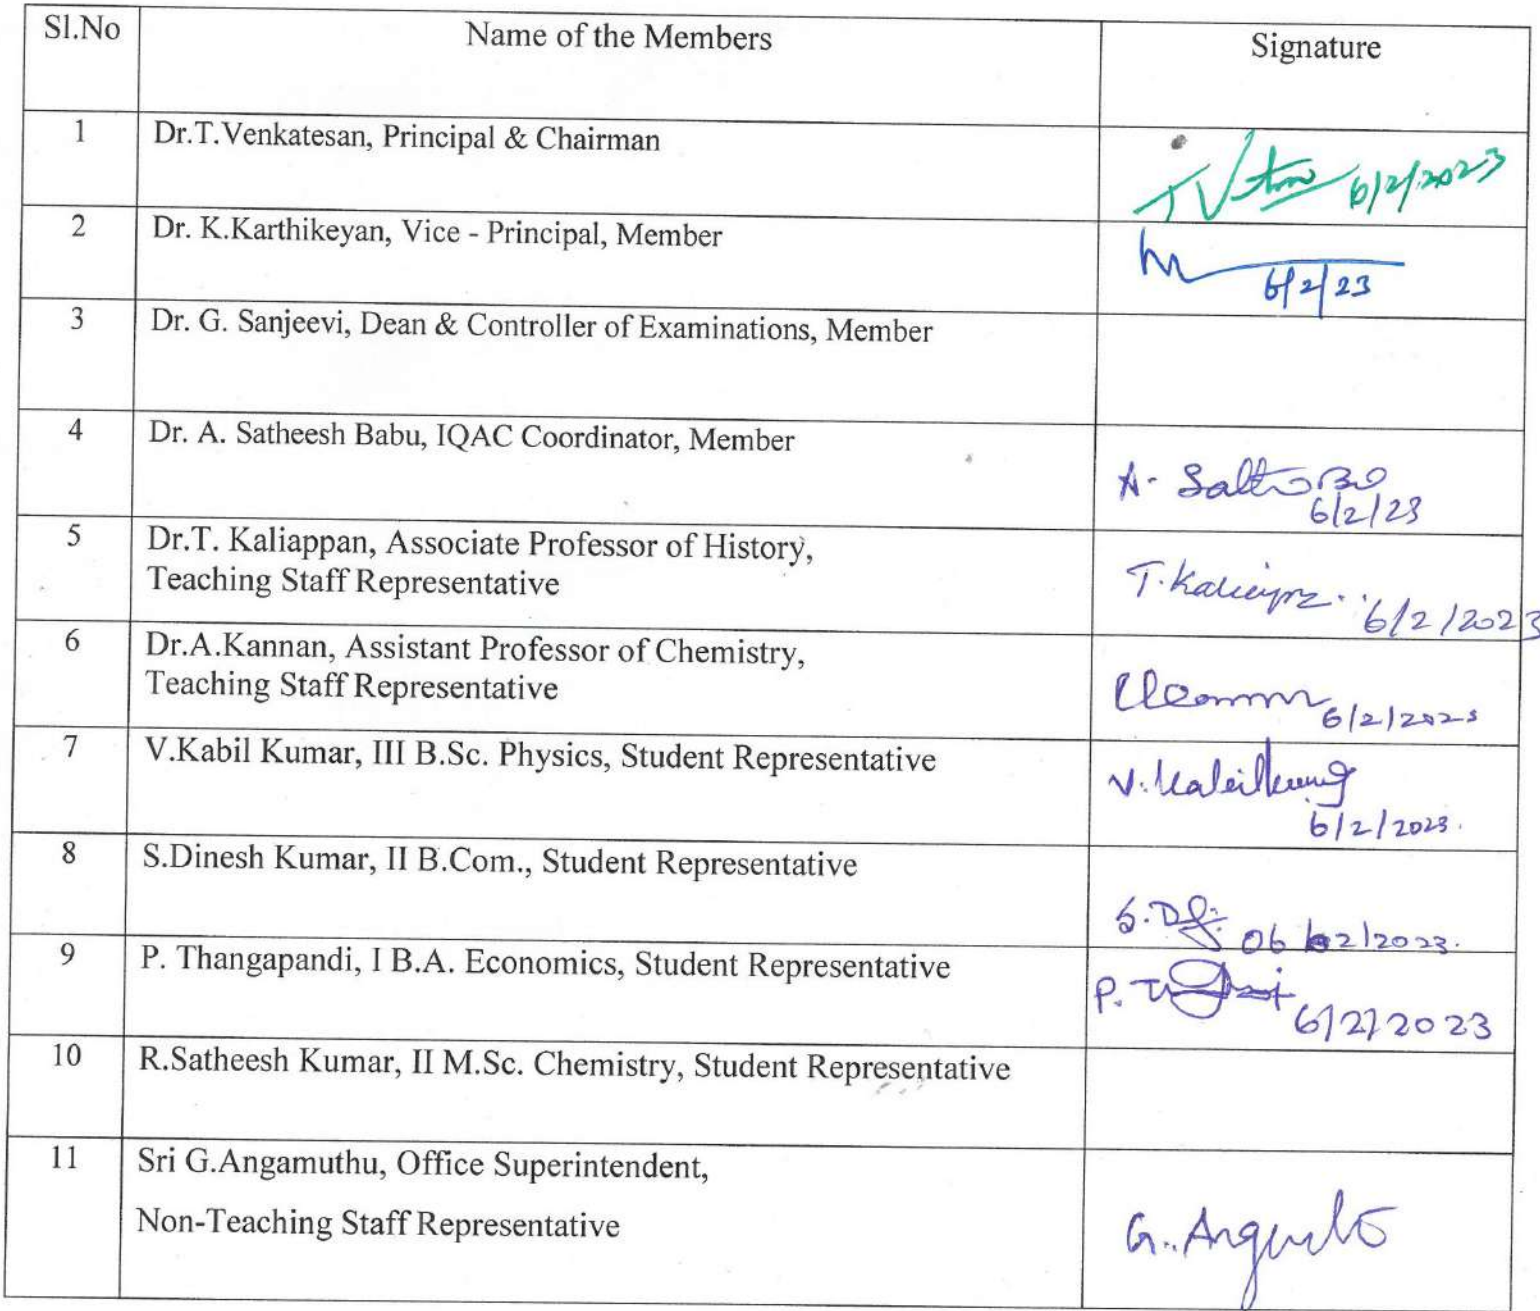 Sl.No Name of the Members Signature
1 Dr.T.Venkatesan, Principal & Chairman 6/2/2023
2 Dr. K.Karthikeyan, Vice - Principal, Member 6/2/23
3 Dr. G. Sanjeevi, Dean & Controller of Examinations, Member
4 Dr. A. Satheesh Babu, IQAC Coordinator, Member A.
6/2/23
5 Dr.T. Kaliappan, Associate Professor of History,
Teaching Staff Representative T. 6/2/2023
6 Dr.A.Kannan, Assistant Professor of Chemistry,
Teaching Staff Representative 6/2/2023
7 V.Kabil Kumar, III B.Sc. Physics, Student Representative V.
6/2/2023.
8 S.Dinesh Kumar, II B.Com., Student Representative
S. 06/02/2023.
9 P. Thangapandi, I B.A. Economics, Student Representative P.
6/2/2023
10 R.Satheesh Kumar, II M.Sc. Chemistry, Student Representative
11 Sri G.Angamuthu, Office Superintendent,
Non-Teaching Staff Representative G.